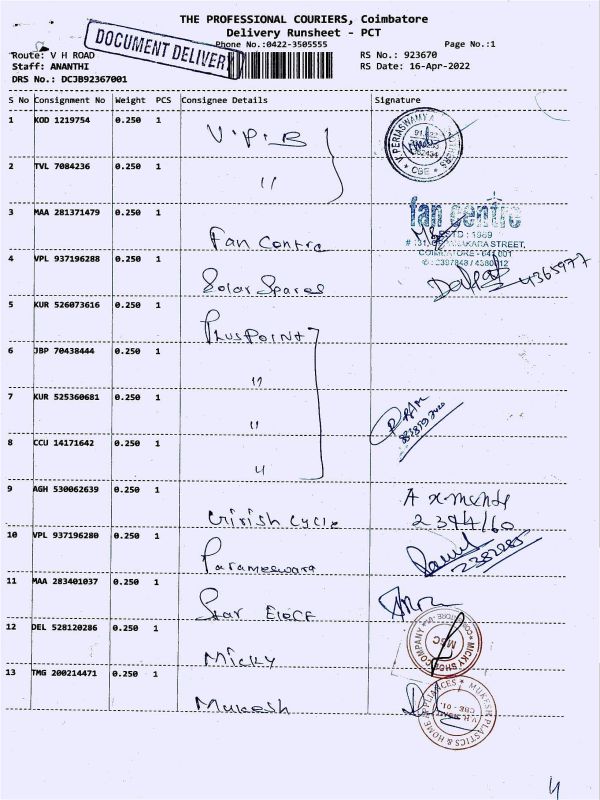 THE PROFESSIONAL COURIERS, Coimbatore
Delivery Runsheet - PCT
DOCUMENT DELIVERY
Phone No.:0422-3505555 Page No.:1
Route: V H ROAD RS No.: 923670
Staff: ANANTHI RS Date: 16-Apr-2022
DRS No.: DCJB92367001
S No Consignment No Weight PCS Consignee Details Signature
1 KOD 1219754 0.250 1 V.P.B
V PERIASWAMY CBE
2 TVL 7084236 0.250 1 "
3 MAA 281371479 0.250 1 Fan Centre
fan centre
ESTD : 1989
STREET,
COIMBATORE - 641 001
4 VPL 937196288 0.250 1 Solar Spares 4365977
5 KUR 526073616 0.250 1 PlusPoint
6 JBP 70438444 0.250 1 "
7 KUR 525360681 0.250 1 "
8 CCU 14171642 0.250 1 "
9 AGH 530062639 0.250 1 Girish Cycle
2394160
10 VPL 937196280 0.250 1 Parameswara 2382285
11 MAA 283401037 0.250 1 Star Elect
12 DEL 528120286 0.250 1 Micky
MICKY SHOE COMPANY MSC
13 TMG 200214471 0.250 1 Mukesh
MUKESH PLASTICS & HOME APPLIANCES CBE - 01
4